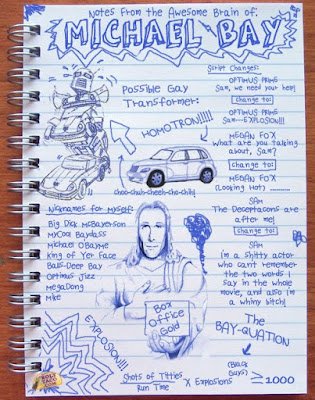 Notes from the Awesome Brain of:
MICHAEL BAY
Possible Gay
Transformer:
HOMOTRON!!!!
choo-chuh-cheek-cha-chily!
Script Changes:
OPTIMUS PRIME
Sam, we need your help!
change to:
OPTIMUS PRIME
Sam---EXPLOSION!!!
MEGAN FOX
What are you talking
about, Sam?
change to:
MEGAN FOX
(Looking Hot)
SAM
The Deceptacons are
after me!
change to:
SAM
I'm a shitty actor
who can't remember
the two words I
say in the whole
movie, and also I'm
a whiny bitch!
Nicknames for myself:
Big Dick McBayerson
MyCool Baydass
Michael OBayMe
King of Yer Face
Ball-Deep Bay
Optimus Jizz
MegaDong
Mike
Box
Office
God
EXPLOSION!!!
The
BAY-QUATION
Shots of Titties
Run Time
X Explosions
(Black Guys)
≥ 1000